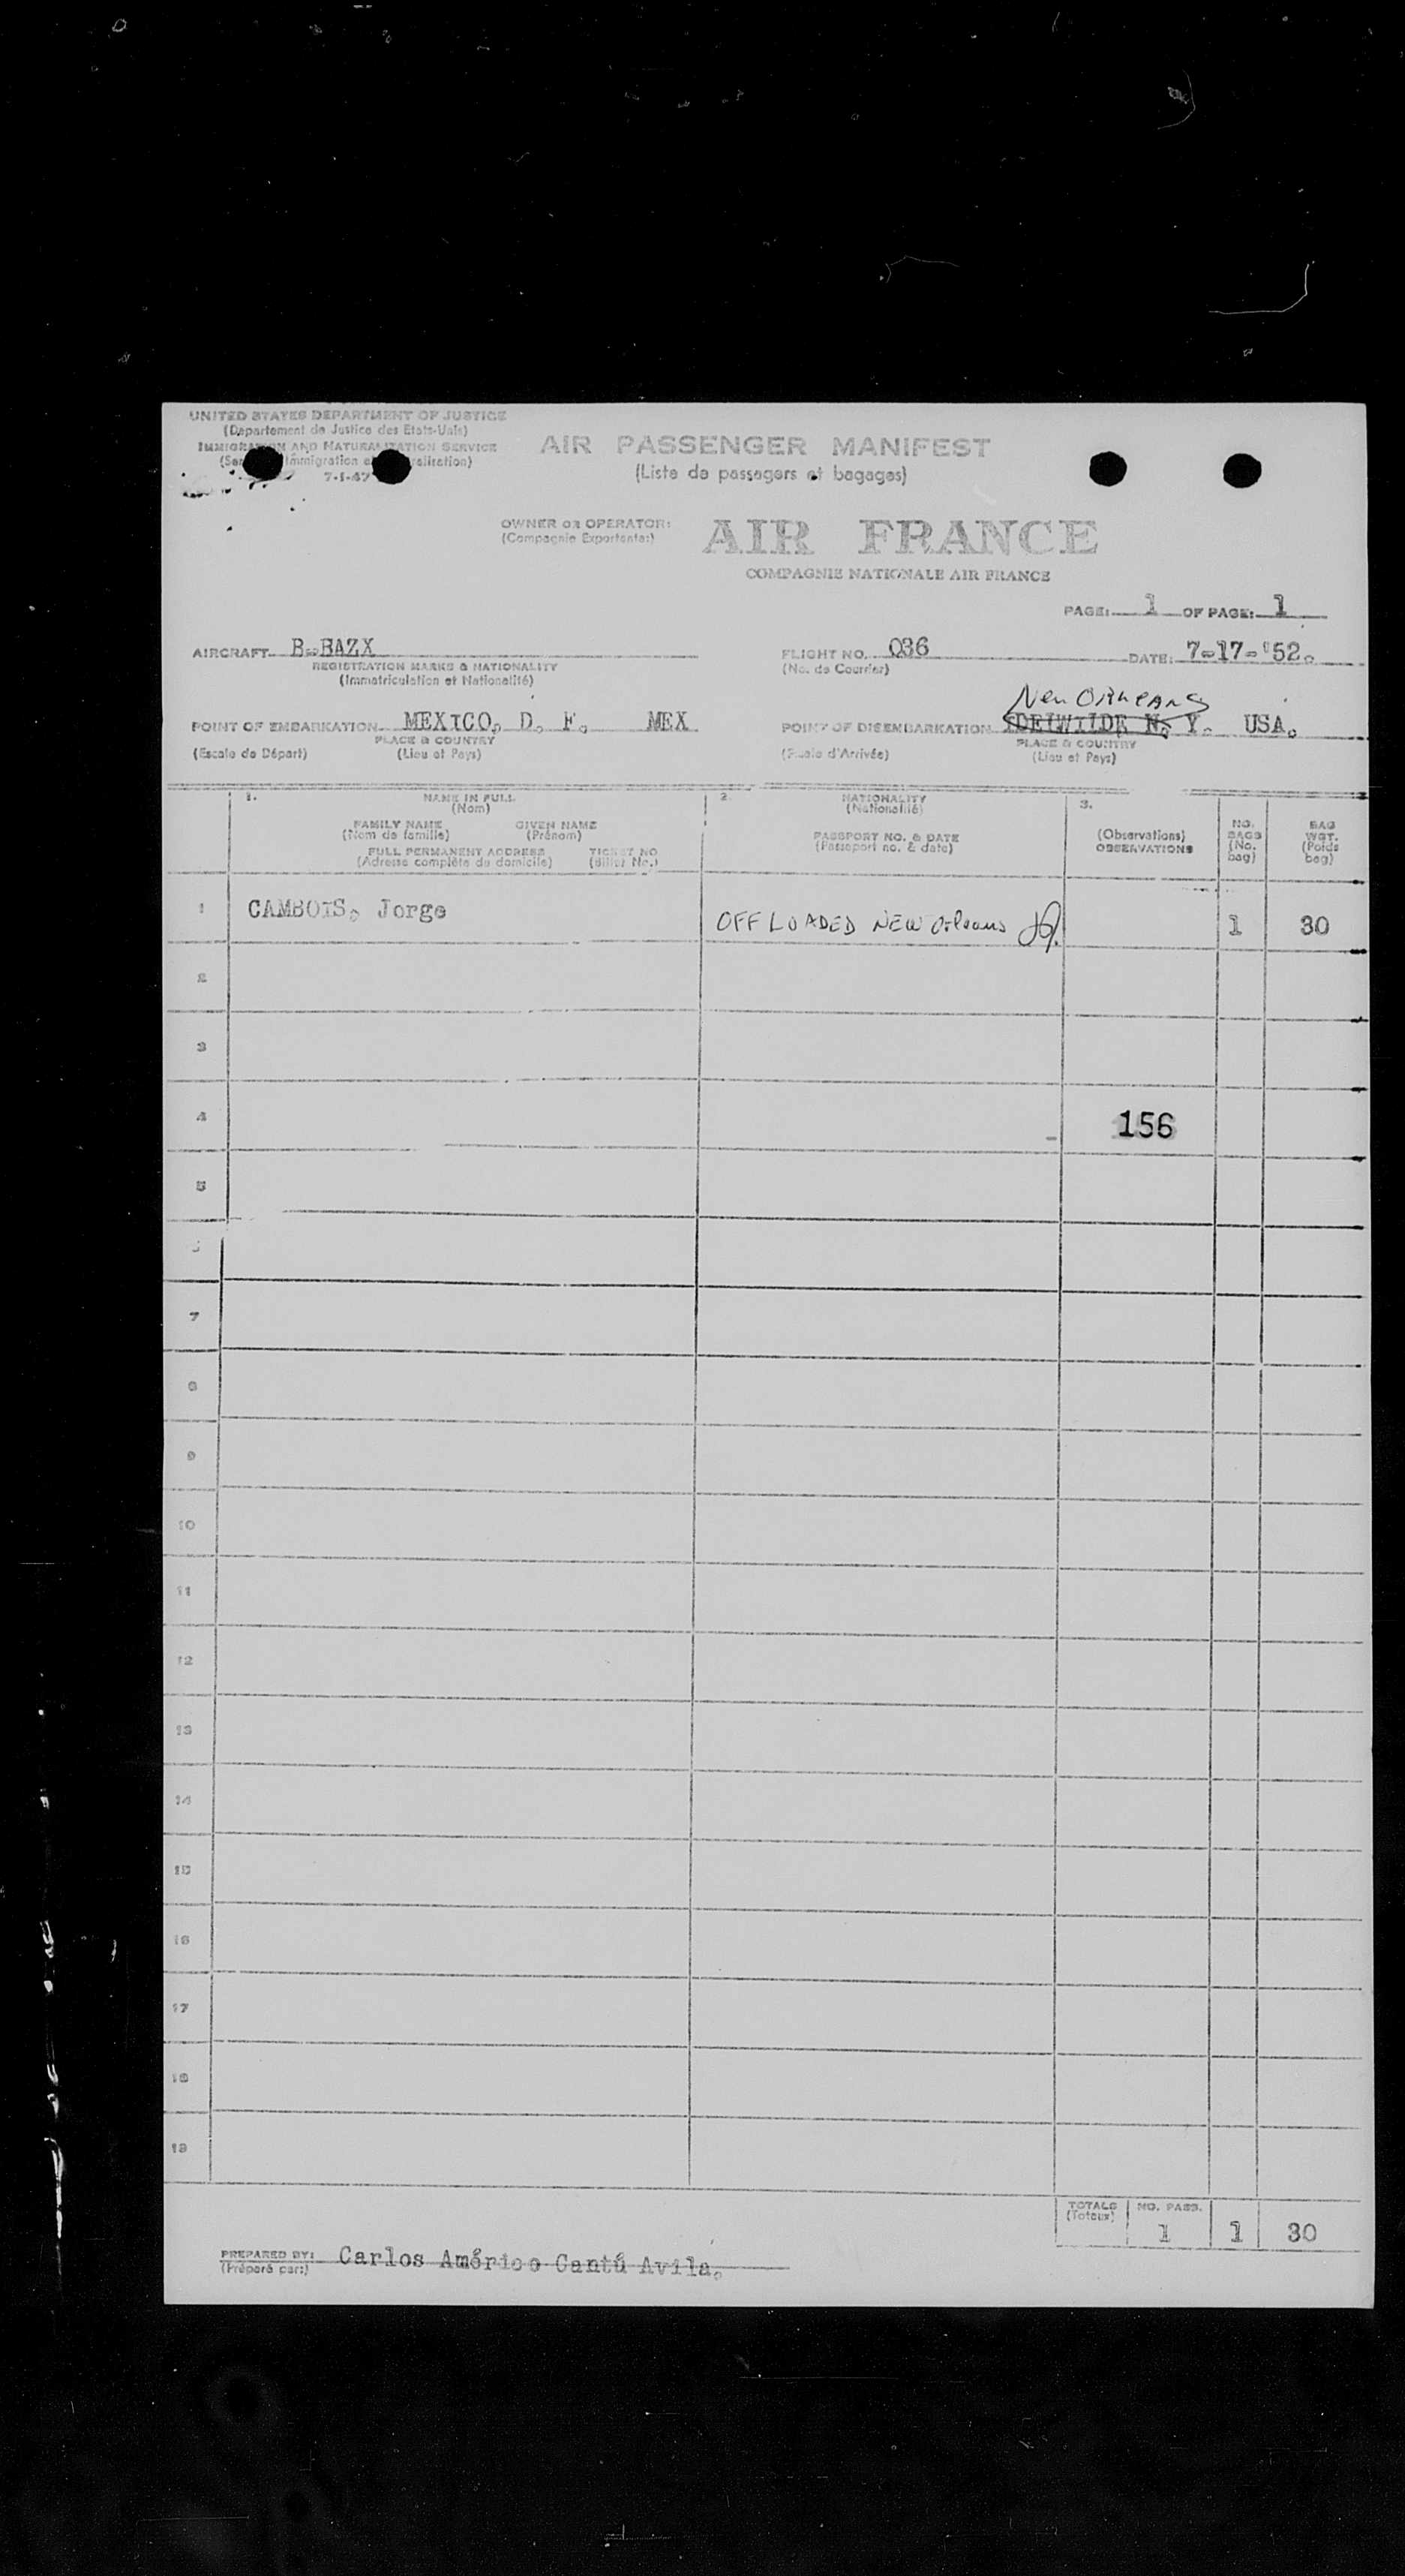 UNITED STATES DEPARTMENT OF JUSTICE
(Departement de Justice des Etats-Unis)
IMMIGRATION AND NATURALIZATION SERVICE
7-1-47
AIR PASSENGER MANIFEST
(Liste de passagers et bagages)
OWNER OR OPERATOR:
(Compagnie Exportante:)
AIR FRANCE
COMPAGNIE NATIONALE AIR FRANCE
PAGE: 1 OF PAGE: 1
AIRCRAFT B-BAZX
REGISTRATION MARKS & NATIONALITY
(Immatriculation et Nationalité)
FLIGHT NO. 036 DATE: 7-17-'52.
(No. de Courrier)
New Orleans
POINT OF EMBARKATION MEXICO, D. F. MEX
PLACE & COUNTRY
(Escale de Départ) (Lieu et Pays)
POINT OF DISEMBARKATION IDELWILDE N. Y. USA.
PLACE & COUNTRY
(Escale d'Arrivée) (Lieu et Pays)
1. NAME IN FULL
(Nom)
FAMILY NAME GIVEN NAME
(Nom de famille) (Prénom)
FULL PERMANENT ADDRESS TICKET NO
(Adresse complète du domicile) (Billet No.)
2. NATIONALITY
(Nationalité)
PASSPORT NO. & DATE
(Passeport no. & date)
3.
(Observations)
OBSERVATIONS
NO.
BAGS
(No.
bag)
BAG
WGT.
(Poids
bag)
1 CAMBOIS, Jorge OFF LOADED NEW Orleans 1 30
2
3
4 156
5
7
8
9
10
11
12
13
14
15
16
17
18
19
TOTALS NO. PASS.
(Totaux) 1 1 30
PREPARED BY: Carlos Américo Cantú Avila.
(Préparé par:)